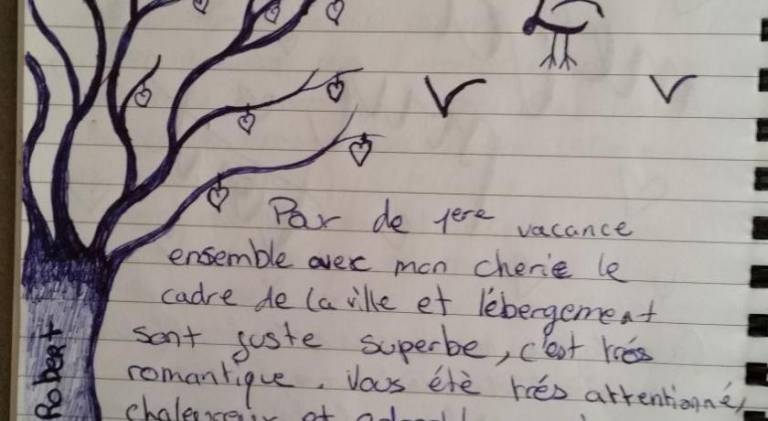 Par de 1ere vacance
ensemble avec mon cherie le
cadre de la ville et lébergement
sont juste superbe, c'est trés
romantique. Vous étè trés attentionné,
chaleureux et
Robert